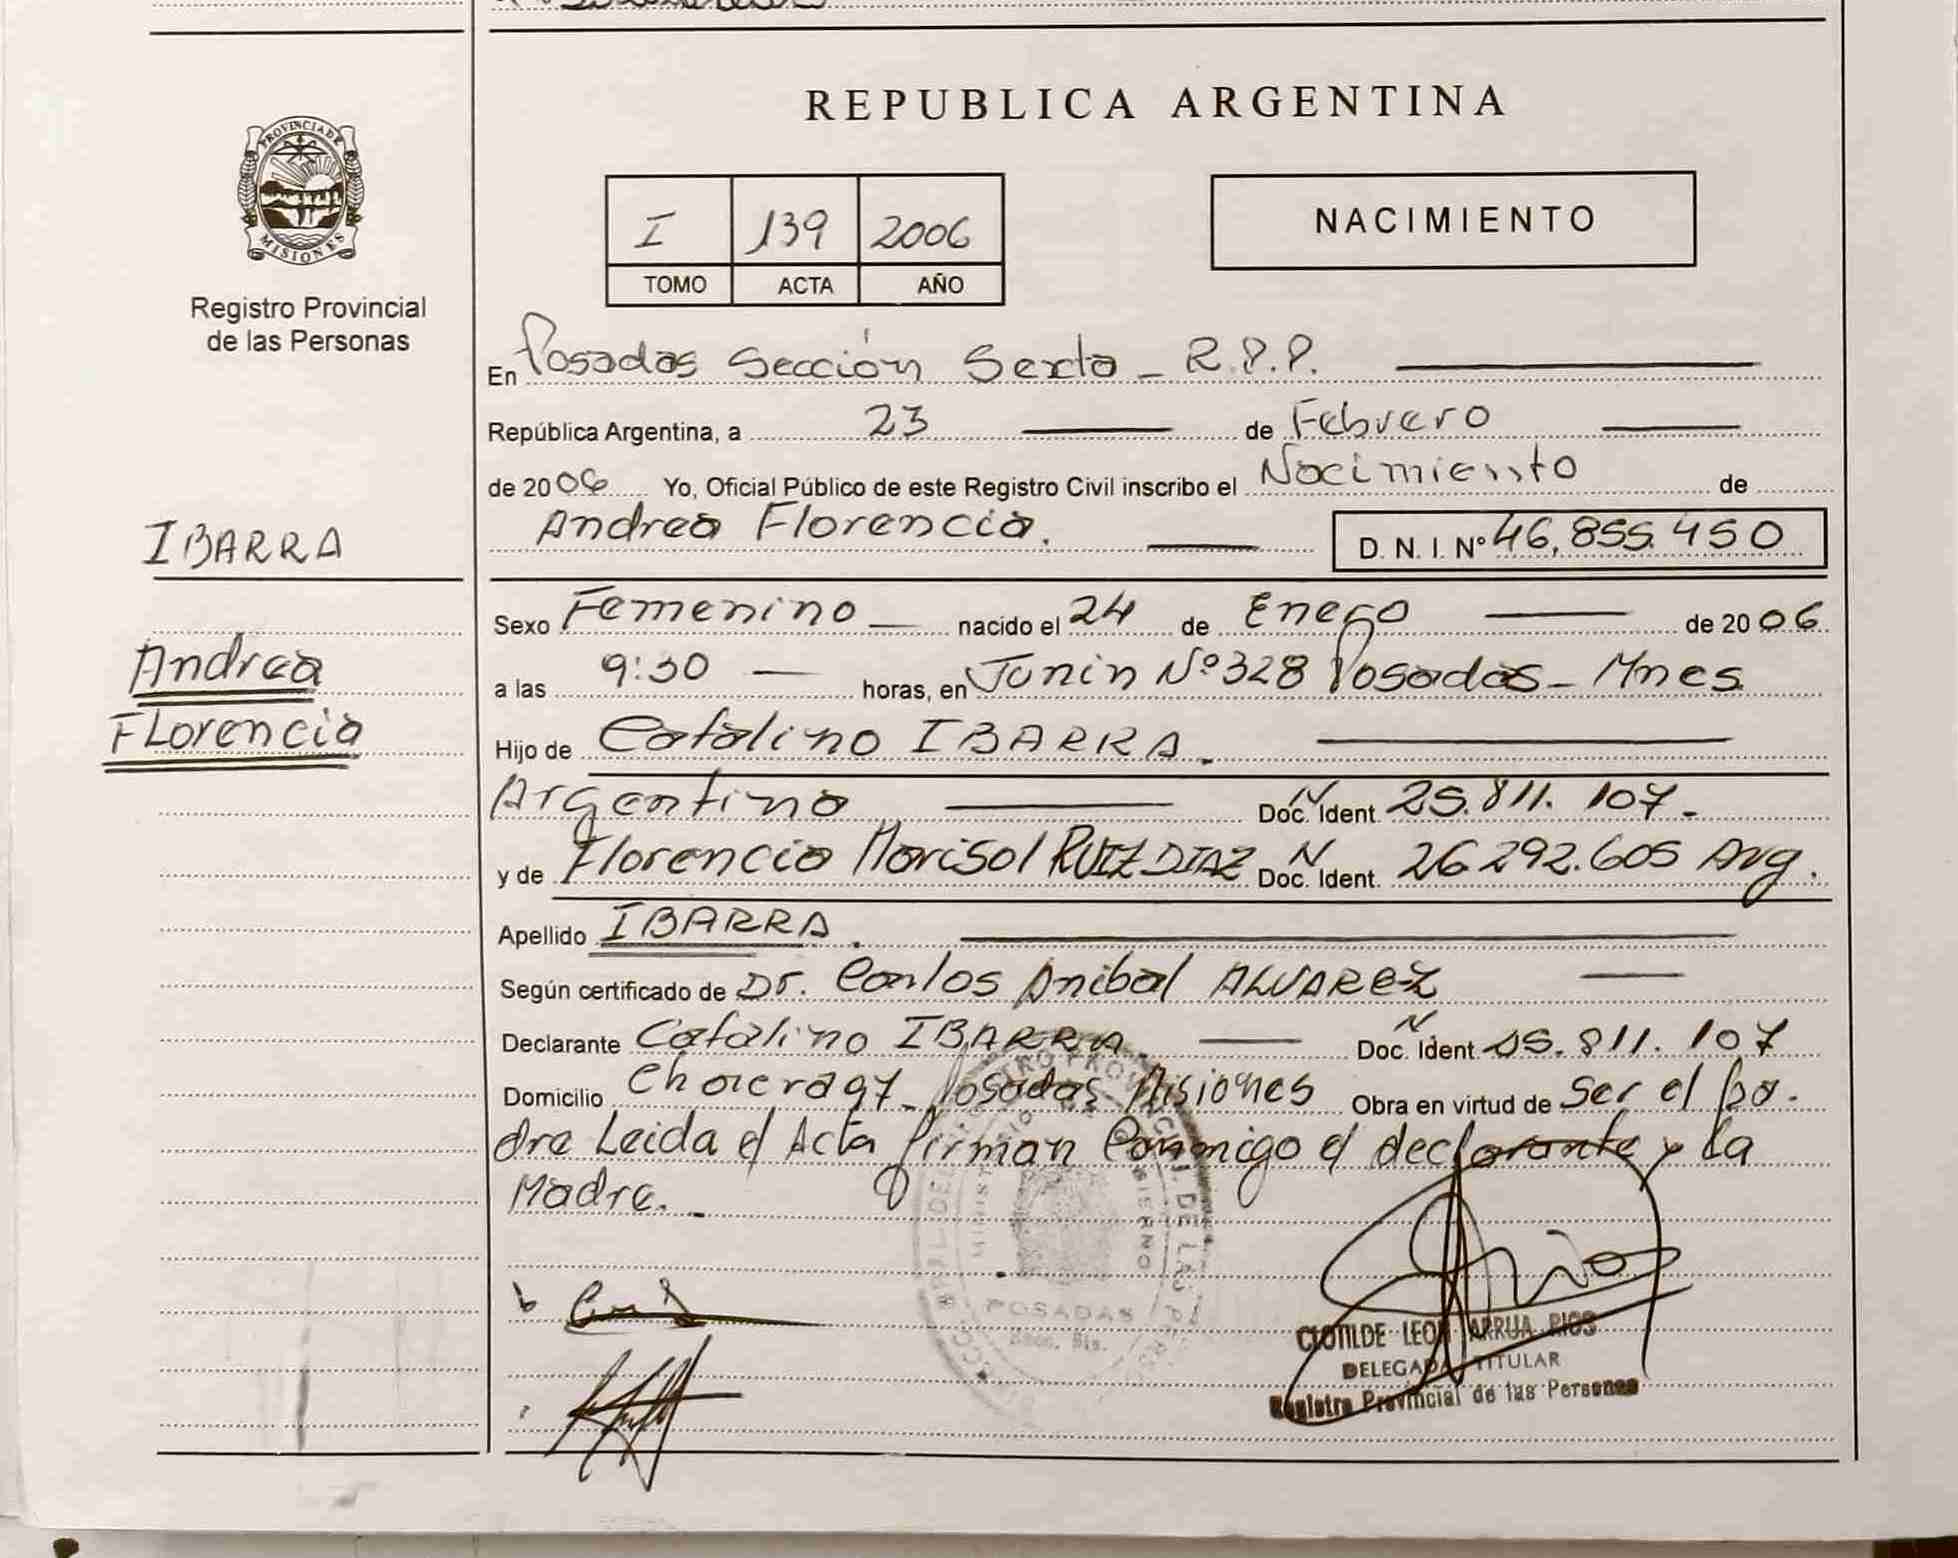 REPUBLICA ARGENTINA
PROVINCIA DE
MISIONES
Registro Provincial
de las Personas
I 139 2006
TOMO ACTA AÑO
NACIMIENTO
En Posadas Sección Sexta - R.P.P.
República Argentina, a 23 de Febrero
de 2006 Yo, Oficial Público de este Registro Civil inscribo el Nacimiento de
Andrea Florencia. D. N. I. Nº 46.855.450
IBARRA
Andrea
FLorencia
Sexo Femenino nacido el 24 de Enero de 2006
a las 9:30 horas, en Junin Nº 328 Posadas - Mnes
Hijo de Catalino IBARRA.
Argentino Doc. N Ident. 25.811.107.-
y de Florencia Marisol RUIZ DIAZ Doc. N Ident. 26.292.605 Arg.
Apellido IBARRA.
Según certificado de Dr. Carlos Anibal ALVAREZ
Declarante Catalino IBARRA Doc. N Ident 25.811.107
Domicilio Posadas Misiones Obra en virtud de Ser el pa-
dre Leida el Acta firman Conmigo el declarante y La
Madre.-
POSADAS
Secc. 6ta.
CLOTILDE LEON ARRUA RIOS
DELEGADA TITULAR
Registro Provincial de las Personas